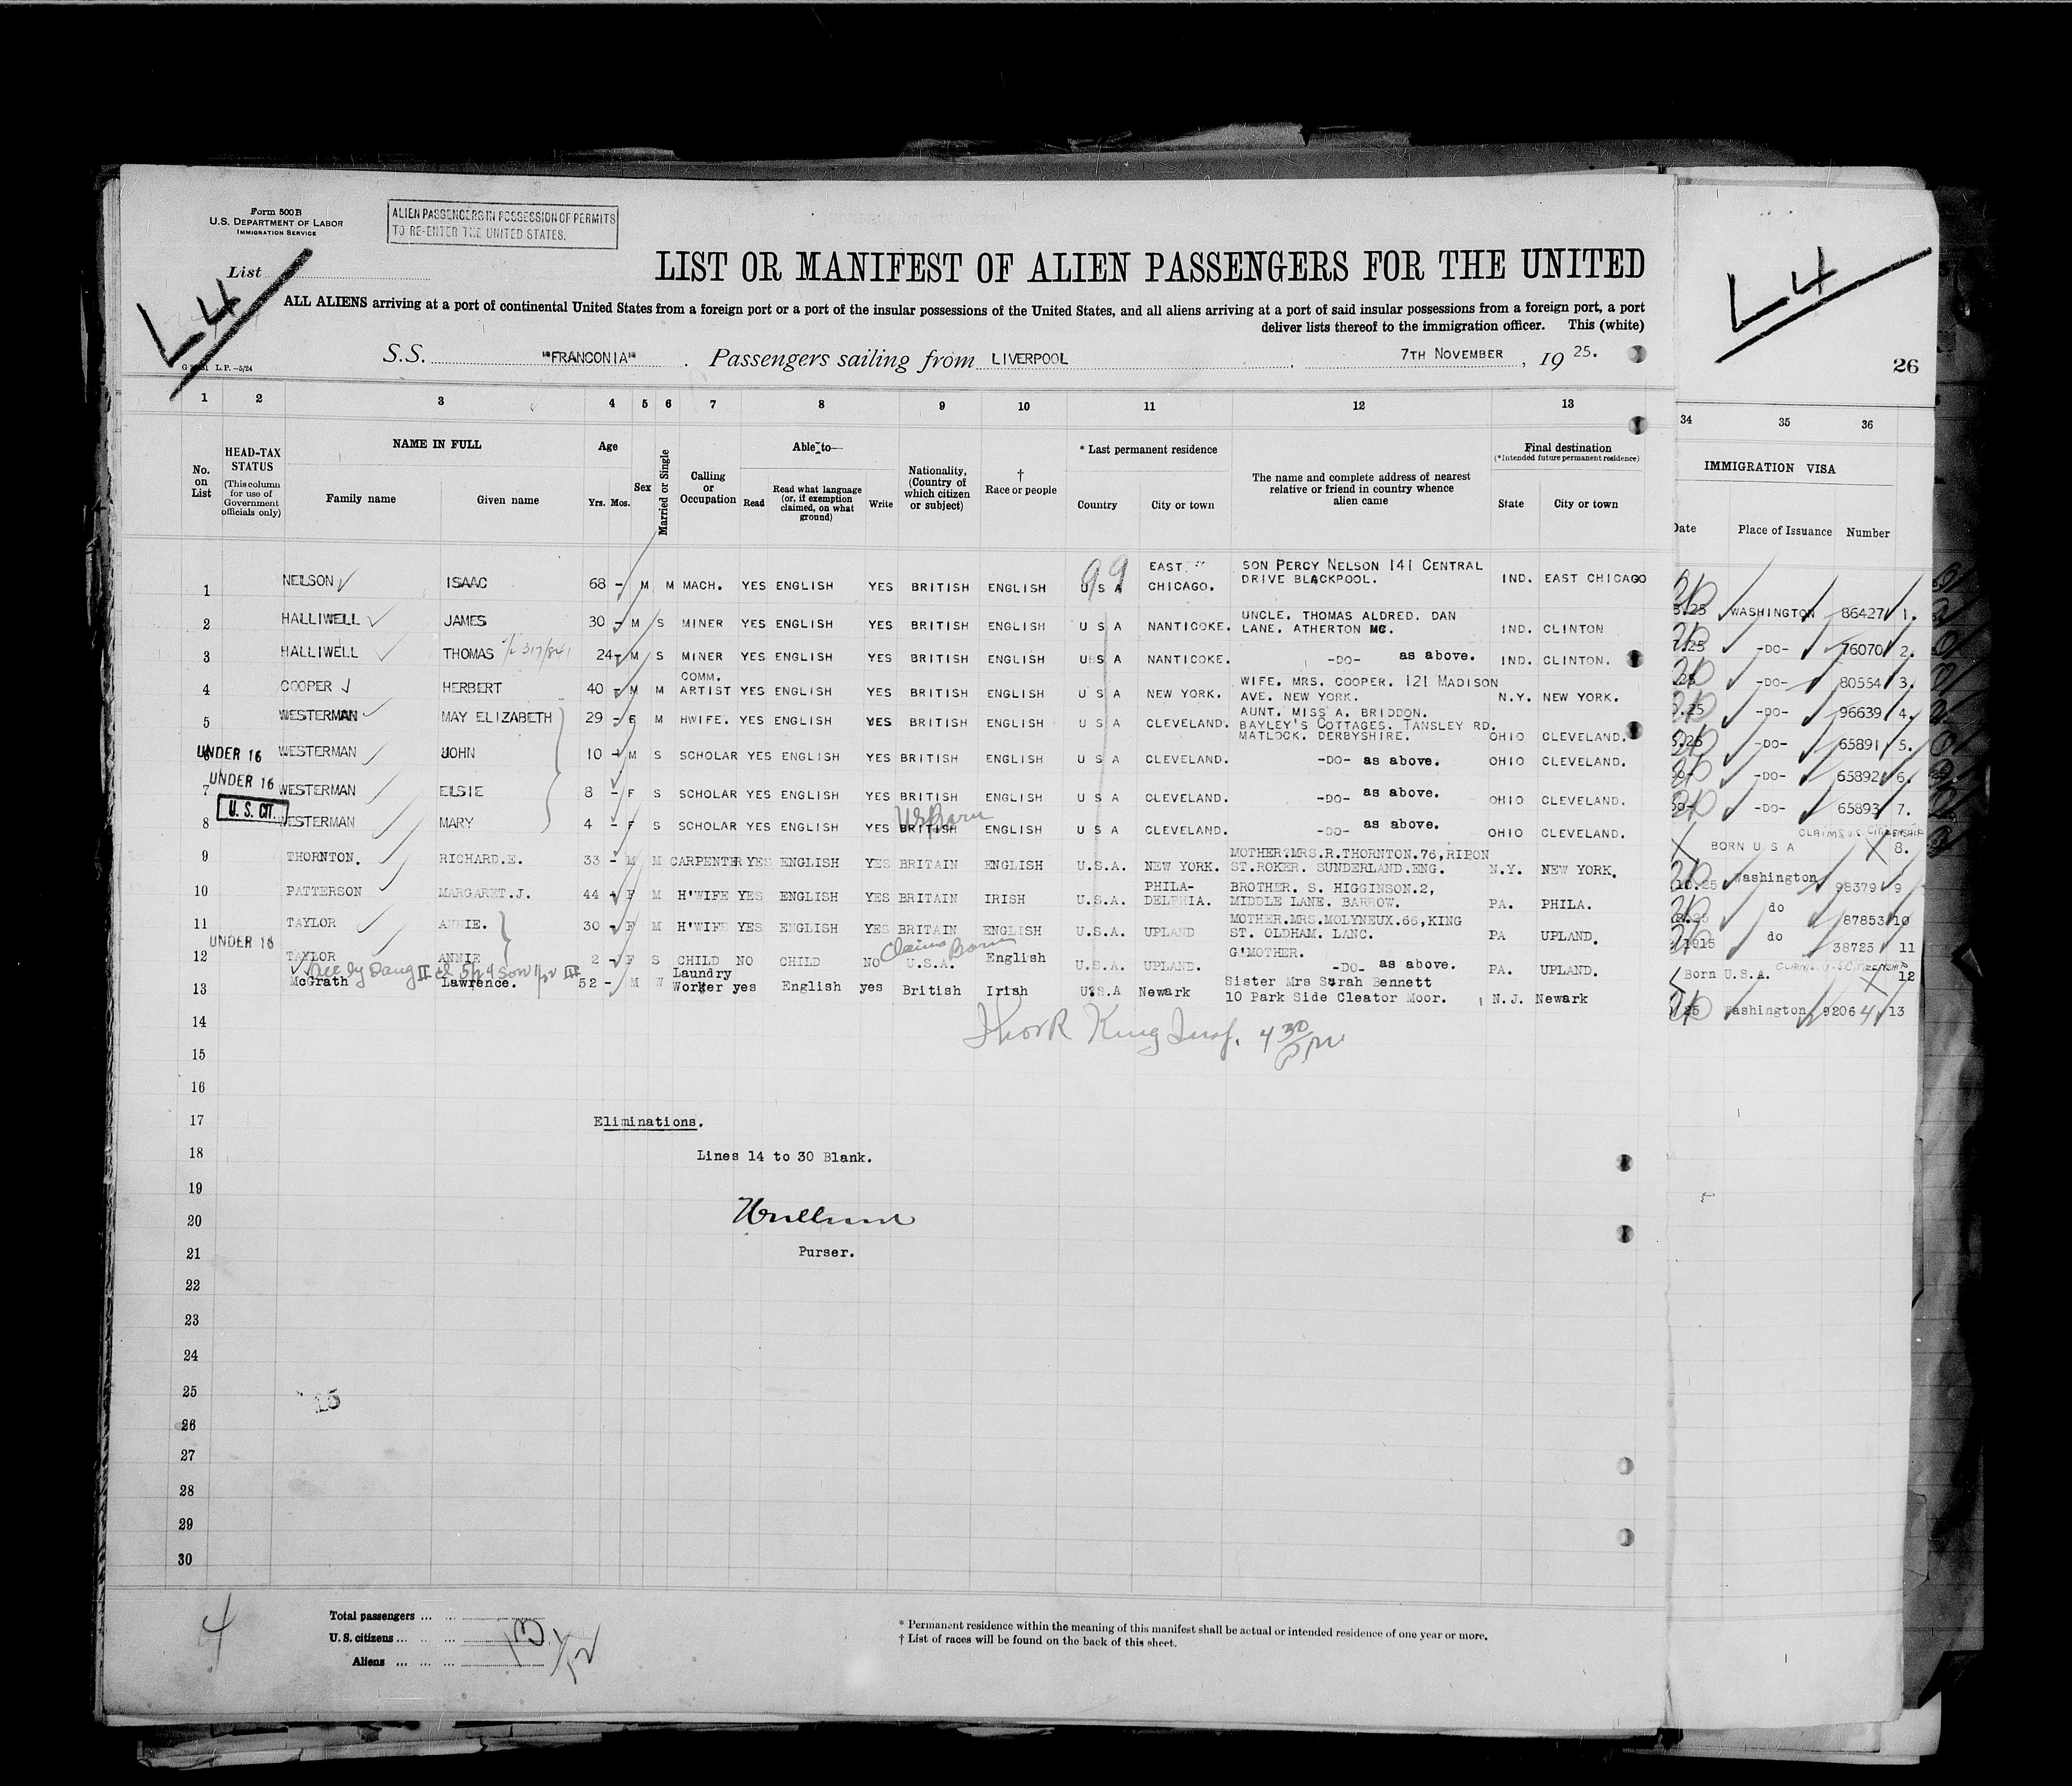 Form 500 B
U.S. DEPARTMENT OF LABOR
IMMIGRATION SERVICE
ALIEN PASSENGERS IN POSSESSION OF PERMITS
TO RE-ENTER THE UNITED STATES.
List
L4
L4
LIST OR MANIFEST OF ALIEN PASSENGERS FOR THE UNITED
ALL ALIENS arriving at a port of continental United States from a foreign port or a port of the insular possessions of the United States, and all aliens arriving at a port of said insular possessions from a foreign port, a port
deliver lists thereof to the immigration officer. This (white)
S.S. "FRANCONIA" . Passengers sailing from LIVERPOOL , 7TH NOVEMBER , 19 25.
L.P. —5/24
26
1 2 3 4 5 6 7 8 9 10 11 12 13 34 35 36
No. on List
HEAD-TAX STATUS (This column for use of Government officials only)
NAME IN FULL
Family name Given name
Age
Yrs. Mos.
Sex
Married or Single
Calling or Occupation
Able to—
Read Read what language (or, if exemption claimed, on what ground) Write
Nationality, (Country of which citizen or subject)
† Race or people
* Last permanent residence
Country City or town
The name and complete address of nearest relative or friend in country whence alien came
Final destination
(*Intended future permanent residence)
State City or town
IMMIGRATION VISA
Date Place of Issuance Number
99
1 NELSON ISAAC 68 - M M MACH. YES ENGLISH YES BRITISH ENGLISH U S A EAST CHICAGO. SON PERCY NELSON 141 CENTRAL DRIVE BLACKPOOL. IND. EAST CHICAGO WASHINGTON 86427 1.
2 HALLIWELL JAMES 30 - M S MINER YES ENGLISH YES BRITISH ENGLISH U S A NANTICOKE. UNCLE. THOMAS ALDRED. DAN LANE. ATHERTON MC. IND. CLINTON -DO- 76070 2.
3 HALLIWELL THOMAS 24- M S MINER YES ENGLISH YES BRITISH ENGLISH U S A NANTICOKE. -DO- as above. IND. CLINTON. -DO- 80554 3.
4 COOPER HERBERT 40 - M M COMM. ARTIST YES ENGLISH YES BRITISH ENGLISH U S A NEW YORK. WIFE. MRS. COOPER. 121 MADISON AVE. NEW YORK. N.Y. NEW YORK. -DO- 96639 4.
5 WESTERMAN MAY ELIZABETH 29 - F M HWIFE. YES ENGLISH YES BRITISH ENGLISH U S A CLEVELAND. AUNT. MISS A. BRIDDON. BAYLEY'S COTTAGES. TANSLEY RD. MATLOCK. DERBYSHIRE. OHIO CLEVELAND. -DO- 65891 5.
6 UNDER 16 WESTERMAN JOHN 10 - M S SCHOLAR YES ENGLISH YES BRITISH ENGLISH U S A CLEVELAND. -DO- as above. OHIO CLEVELAND. -DO- 65892 6.
7 UNDER 16 WESTERMAN ELSIE 8 - F S SCHOLAR YES ENGLISH YES BRITISH ENGLISH U S A CLEVELAND. -DO- as above. OHIO CLEVELAND. -DO- 65893 7.
8 U.S. CIT. WESTERMAN MARY 4 - F S SCHOLAR YES ENGLISH YES BRITISH US Born ENGLISH U S A CLEVELAND. -DO- as above. OHIO CLEVELAND. BORN U S A CLAIMS U.S. CITIZENSHIP 8.
9 THORNTON. RICHARD.E. 33 - M M CARPENTER YES ENGLISH YES BRITAIN ENGLISH U.S.A. NEW YORK. MOTHER.MRS.R.THORNTON.76,RIPON ST.ROKER. SUNDERLAND.ENG. N.Y. NEW YORK. 10.25 Washington 98379 9
10 PATTERSON MARGARET.J. 44 - F M H'WIFE YES ENGLISH YES BRITAIN IRISH U.S.A. PHILA-DELPHIA. BROTHER. S. HIGGINSON.2, MIDDLE LANE. BARROW. PA. PHILA. do 87853 10
11 TAYLOR ANNIE. 30 - F M H'WIFE YES ENGLISH YES BRITAIN ENGLISH U.S.A. UPLAND MOTHER.MRS.MOLYNEUX.66,KING ST. OLDHAM. LANC. PA UPLAND. 1915 do 38725 11
12 UNDER 16 TAYLOR ANNIE 2 - F S CHILD NO CHILD NO U.S.A. Claims Born English U.S.A. UPLAND. G'MOTHER. -DO- as above. PA. UPLAND. Born U.S.A. CLAIMS U.S. CITIZENSHIP 12
13 McGrath Lawrence. 52 - M W Laundry Worker yes English yes British Irish U.S.A Newark Sister Mrs Sarah Bennett 10 Park Side Cleator Moor. N.J. Newark 25 Washington 92064 13
14
King Insp. 4 30 PM
15
16
17 Eliminations.
18 Lines 14 to 30 Blank.
19
20
21 Purser.
22
23
24
25
26
27
28
29
30
4
Total passengers ... ...
U.S. citizens ... ... ...
Aliens ... ... ...
13
1/12
* Permanent residence within the meaning of this manifest shall be actual or intended residence of one year or more.
† List of races will be found on the back of this sheet.